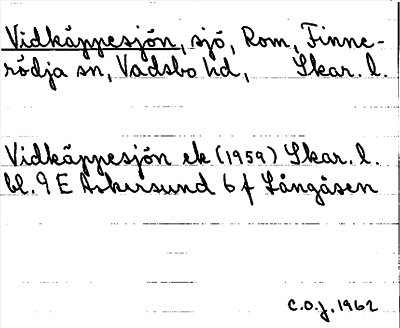 Vidkäppesjön, sjö, Rom, Finne-
rödja sn, Vadsbo hd, Skar. l.
Vidkäppesjön ek (1959) Skar. l.
bl. 9 E Askersund 6 f Långåsen
C.O.J. 1962